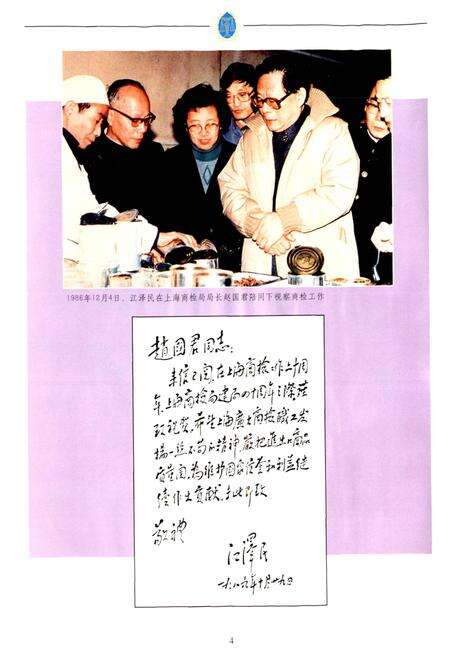 1986年12月4日，江泽民在上海商检局局长赵国君陪同下视察商检工作
趙國君同志：
来信已阅，在上海商检工作六十周
年、上海商检局建局四十周年之际谨
致祝贺。希望上海广大商检职工发
扬一丝不苟的精神，严把进出口商品
质量关，为维护国家信誉和利益继
续作出贡献。专此即致
敬礼
江澤民
一九八九年十月廿九日
4